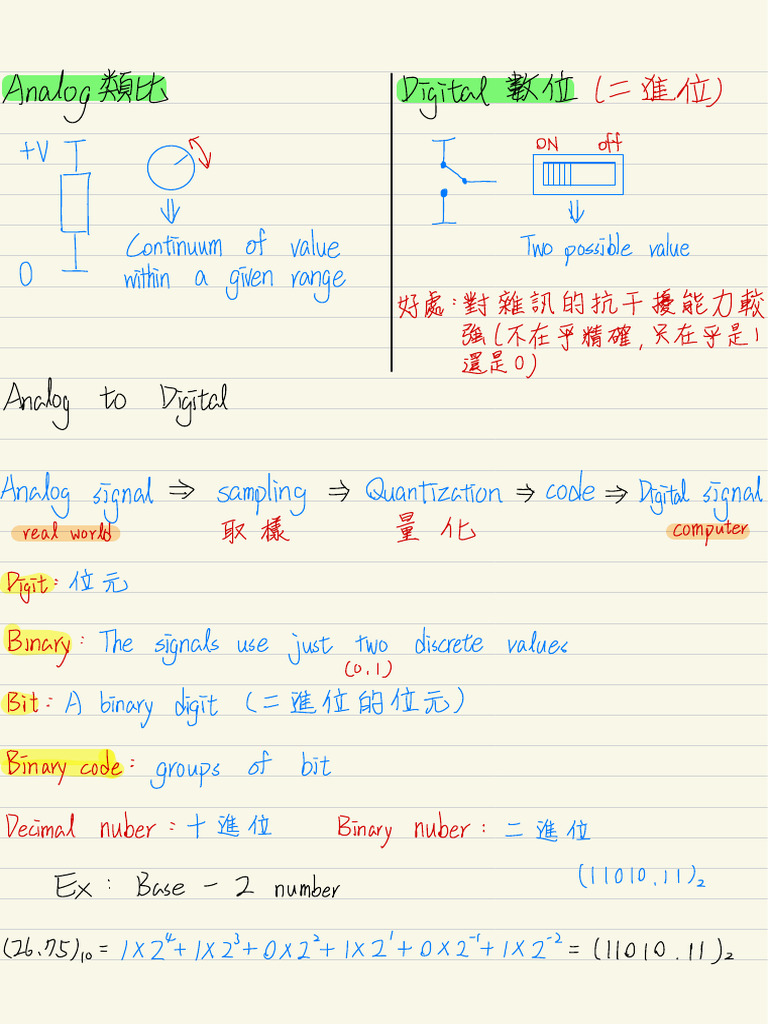 Analog 類比
+V
0
Continuum of value
within a given range
Digital 數位 (二進位)
ON off
Two possible value
好處:對雜訊的抗干擾能力較
強(不在乎精確,只在乎是1
還是0)
Analog to Digital
Analog signal ⇒ sampling ⇒ Quantization ⇒ code ⇒ Digital signal
real world 取樣 量化 computer
Digit: 位元
Binary: The signals use just two discrete values
(0,1)
Bit: A binary digit (二進位的位元)
Binary code: groups of bit
Decimal nuber: 十進位 Binary nuber: 二進位
Ex: Base - 2 number (11010.11)₂
(26.75)₁₀ = 1×2⁴+1×2³+0×2²+1×2¹+0×2⁻¹+1×2⁻² = (11010.11)₂